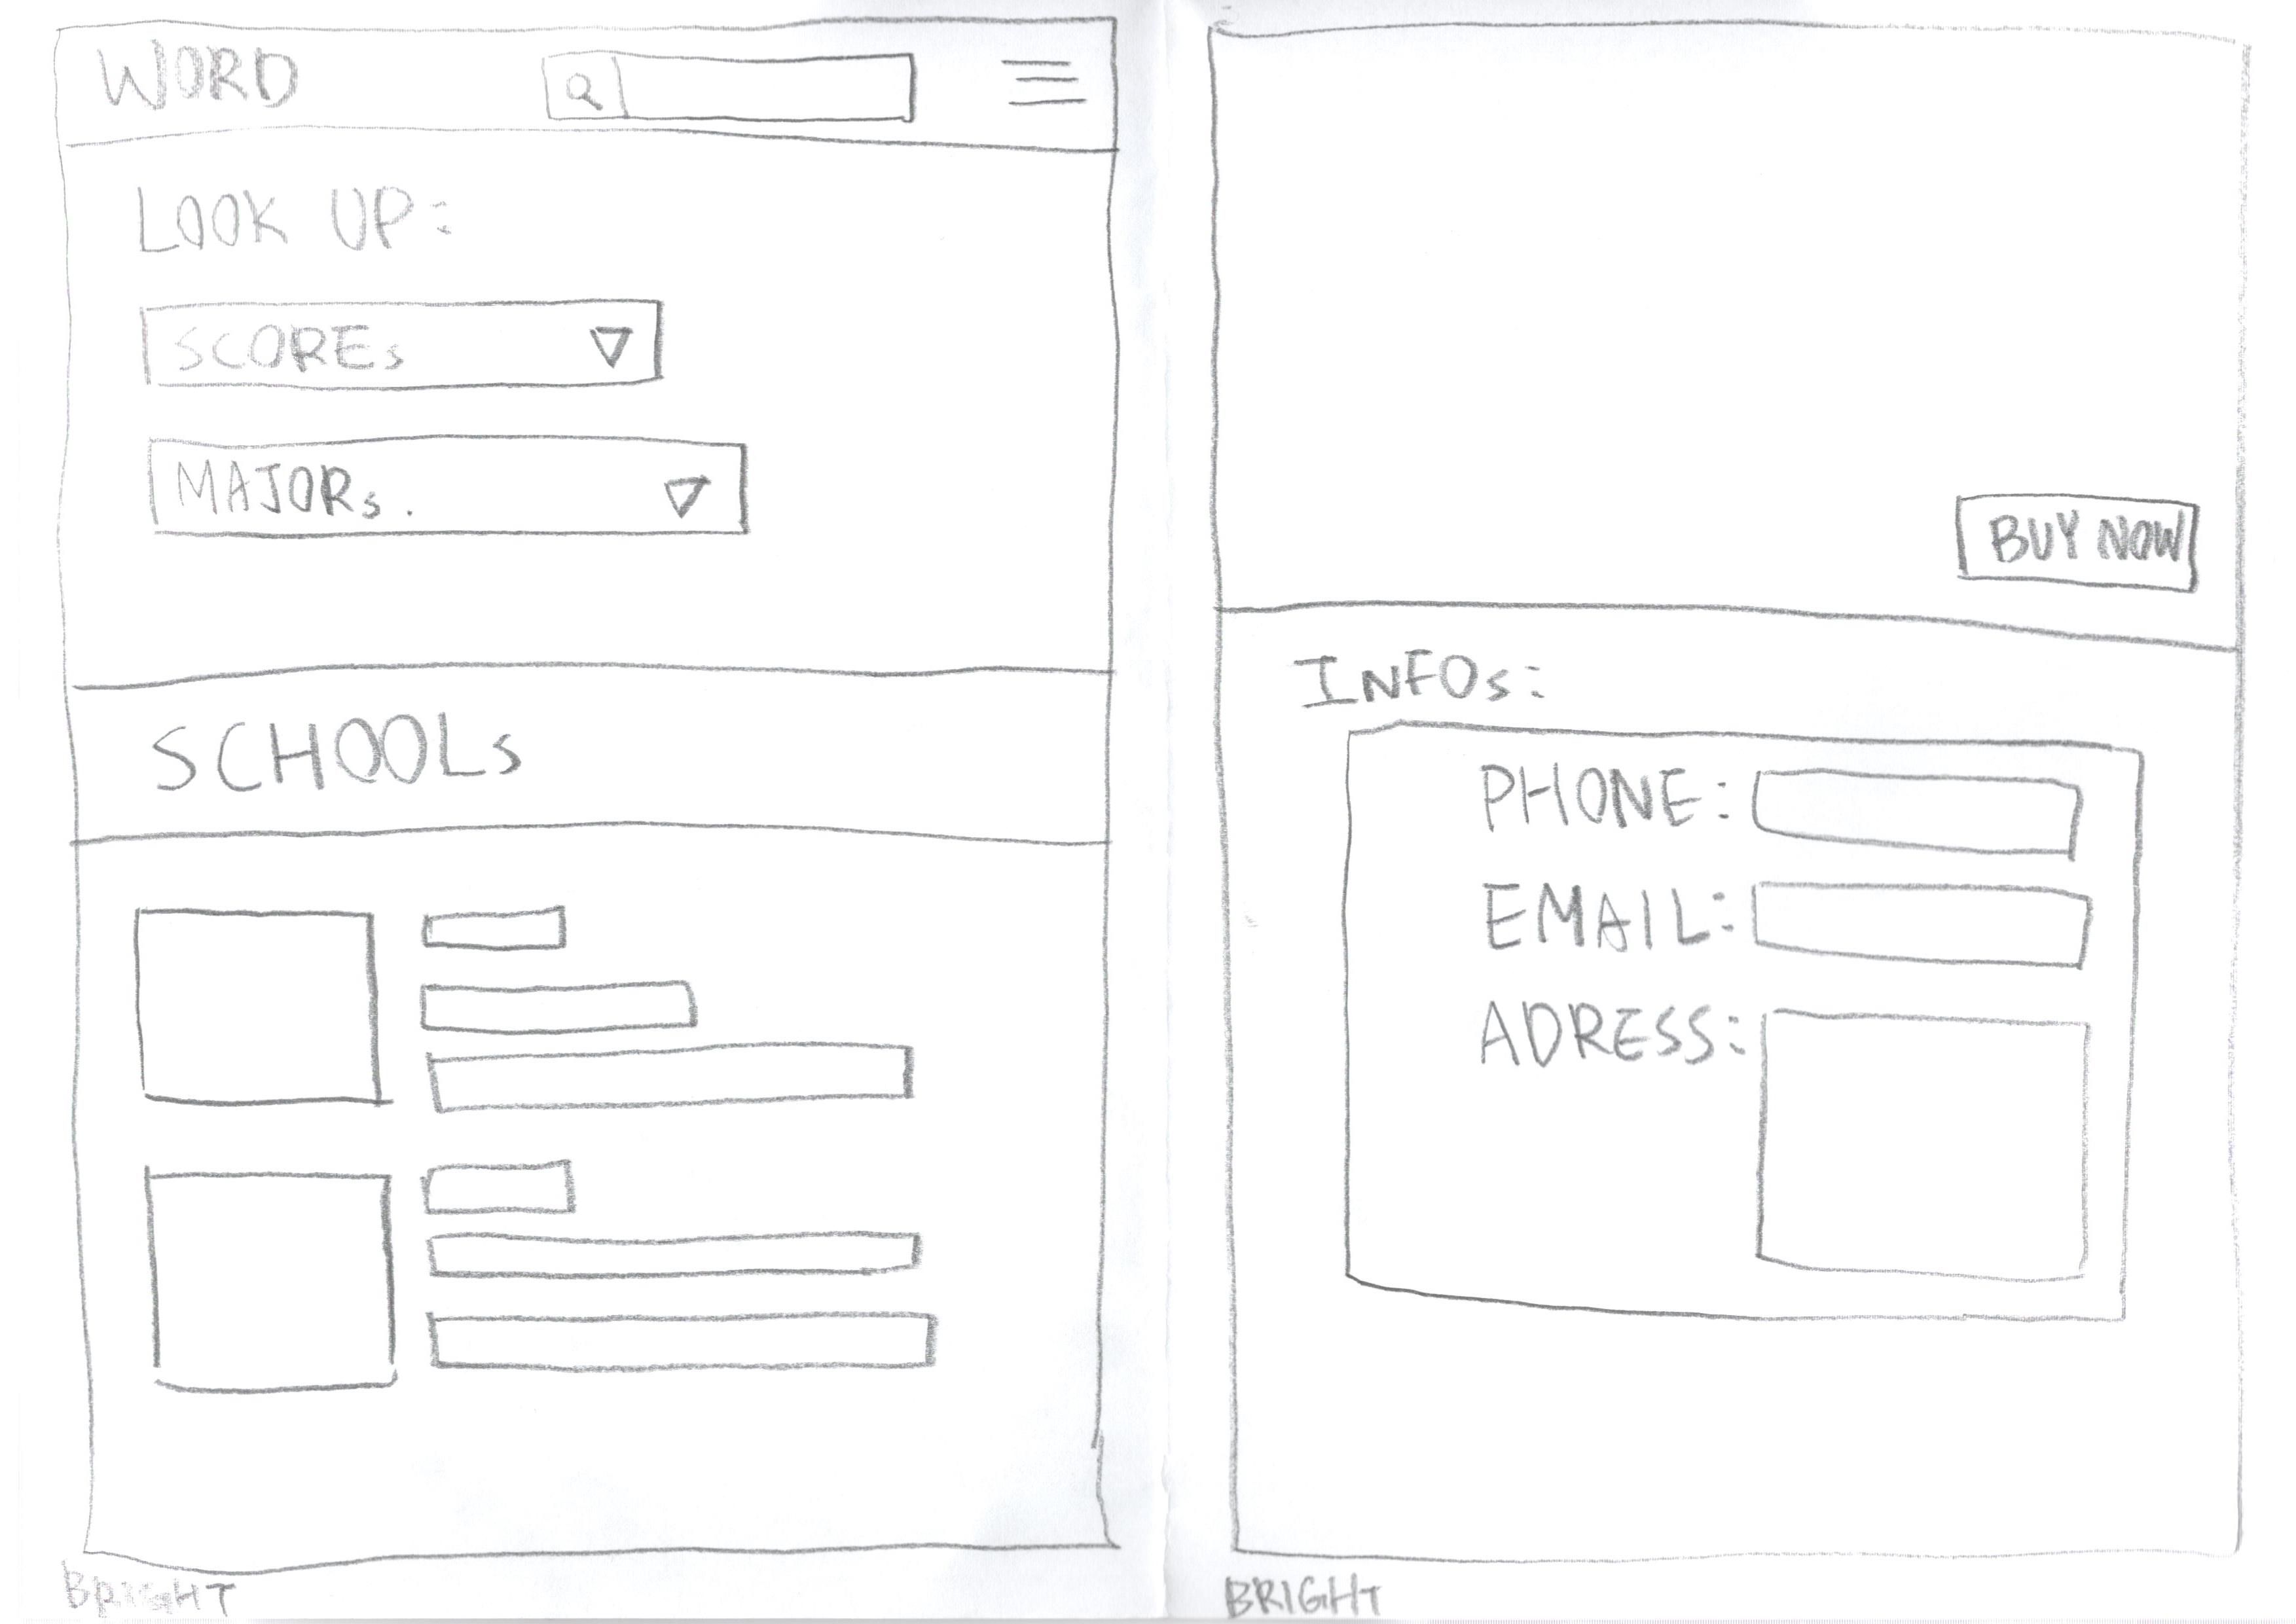 WORD
LOOK UP:
SCOREs
MAJORs.
SCHOOLs
BRIGHT
BUY NOW
INFOs:
PHONE:
EMAIL:
ADRESS:
BRIGHT